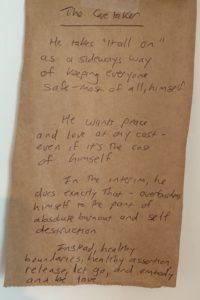 The Caretaker
He takes "it all on"
as a sideways way
of keeping everyone
safe - most of all, himself
He wants peace
and love at any cost -
even if it's the cost
of himself
In the interim, he
does exactly that - overtaxes
himself to the point of
absolute burnout and self
destruction
Instead, healthy
boundaries, healthy assertion,
release, let go, and embody
and be love